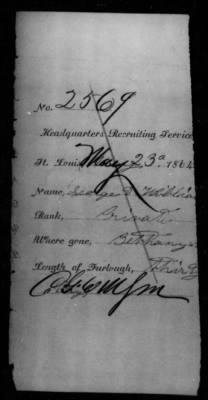 No. 2569
Headquarters Recruiting Service
St. Louis May 23d 1864
Name, George
Rank, Private
Where gone, Bethany
Length of Furlough, Thirty